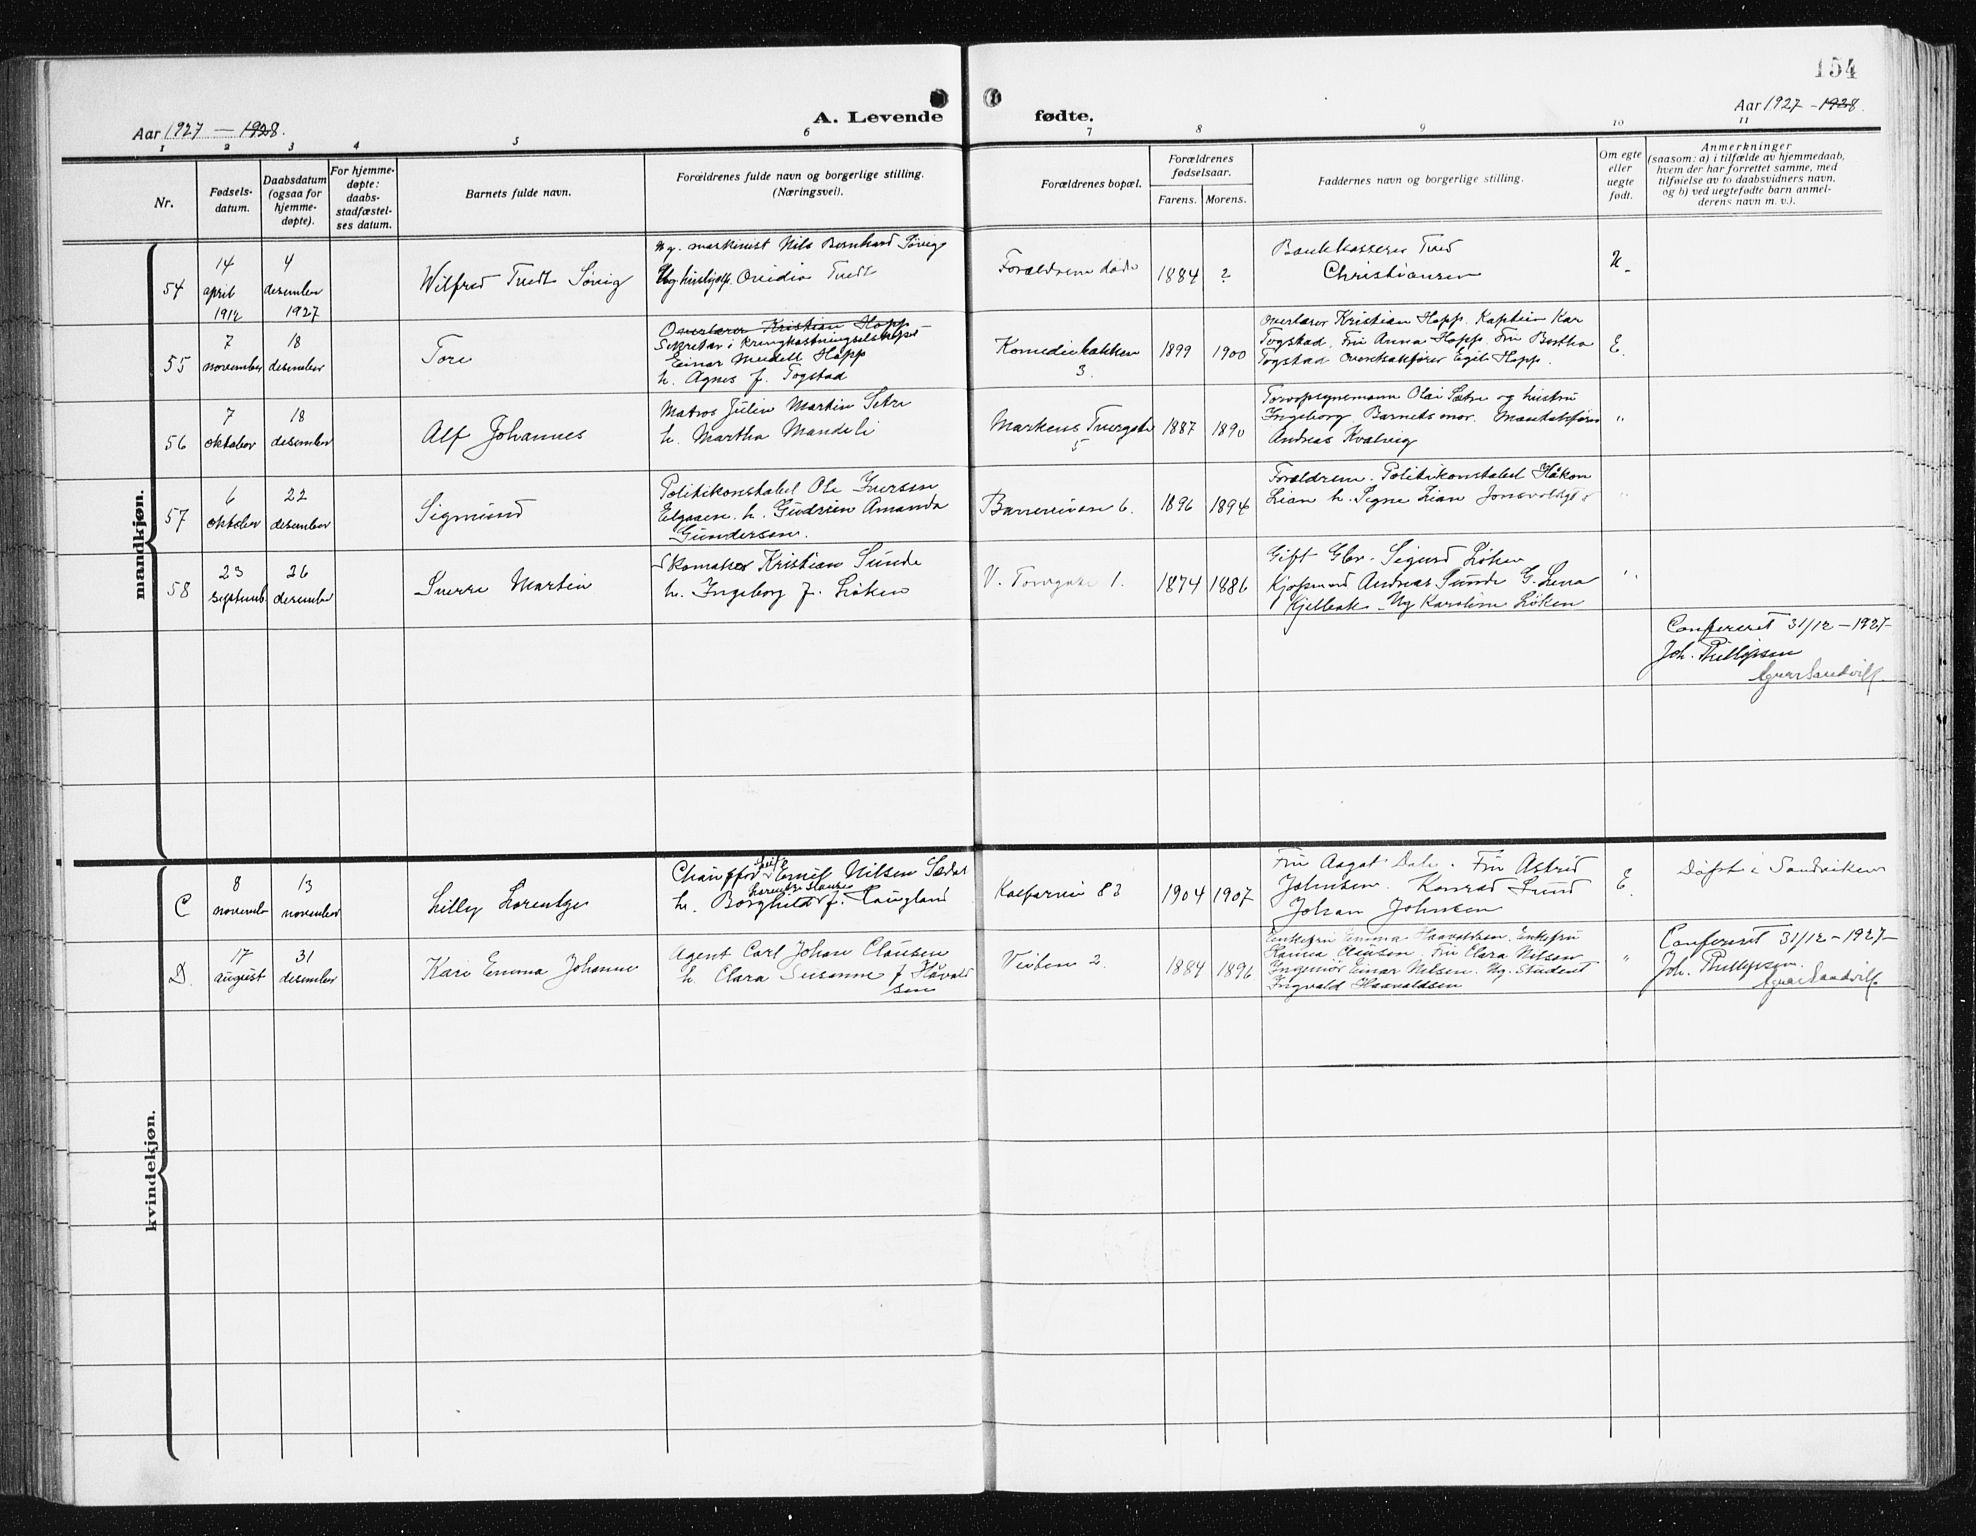 154
Aar 1927 - 1928.
A. Levende fødte.
Aar 1927 - 1928.
1 2 3 4 5 6 7 8 9 10 11
Nr.
Fødsels-
datum.
Daabsdatum
(ogsaa for
hjemme-
døpte).
For hjemme-
døpte:
daabs-
stadfæstel-
ses datum.
Barnets fulde navn.
Forældrenes fulde navn og borgerlige stilling.
(Næringsvei).
Forældrenes bopæl.
Forældrenes
fødselsaar.
Farens. Morens.
Faddernes navn og borgerlige stilling.
Om egte
eller
uegte
født.
Anmerkninger
(saasom: a) i tilfælde av hjemmedaab,
hvem der har forrettet samme, med
tilføielse av to daabsvidners navn,
og b) ved uegtefødte barn anmel-
derens navn m. v.).
mandkjøn.
54
14
april
1912
4
desember
1927
Wilfred Tvedt
Ug. maskinist Nils Bernhard
Tvedt
Forældrene døde
1884 ?
Bankkasserer Tvedt
Christiansen
U.
55
7
november
18
desember
Tore
Overlærer Kristian Hopp
Sekretær i Kringkastningselskapet
Einar Meidell Hopp
h. Agnes f. Togstad
Komediebakken
3.
1899 1900
Overlærer Kristian Hopp. Kaptein Kar
Togstad, Fru Anna Hopp. Fru Bertha
Togstad Overrettssakfører Egil Hopp.
E.
56
7
oktober
18
desember
Alf Johannes
Matros Julin Martin Setre
h. Martha Mandeli
Markens Tvergate
5
1887 1890
Torvopsynsmann Olai Sætre og hustru
Ingeborg Barnets mor.
Andreas Kvalvig
"
57
6
oktober
22
desember
Sigmund
Politikonstabel Ole Iversen
h. Gudrun Amanda
Gundersen.
6.
1896 1894
Forældrene. Politikonstabel Håkon
Lian h. Signe Lian
"
58
23
septemb
26
desember
Sverre Martin
Skomaker Kristian Sunde
h. Ingeborg f. Løken
V. Torvgate 1.
1874 1886
Gift Gbr. Sigurd Løken
Kjøpmand Andreas Sunde G. Lena
Ug Karoline Løken
"
Conferert 31/12 - 1927-
Joh. Phillipsen
Sandvik
kvindekjøn.
C
8
novemb
13
november
Lilly Lorentze
Chauffør Emil Nilsen
h. Borghild f. Haugland
83
1904 1907
Fru Aagot Dale. Fru Astrid
Johnsen. Konrad Lund
Johan Johnsen
E.
Døpt i Sandviken
D.
17
august
31
desember
Kari Emma Johanne
Agent Carl Johan Clausen
h. Clara Susanne f. Håvald
sen
2.
1884 1896
Enkefru Emma Haavaldsen. Enkefru
Hanna Clausen. Fru Clara Nilsen
Ingeniør Einar Nilsen. Ug. Student
Ingvald Haavaldsen
"
Conferert 31/12 - 1927-
Joh. Phillipsen.
Sandvik